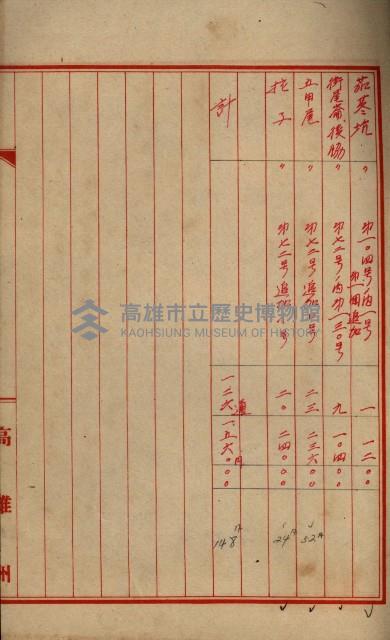 茄萣坑 〃 第一〇四号ノ内一号 第一回追加 一 一二〇〇〇
〃 第七二号ノ内第一三〇号 九 一〇四〇〇〇
五甲尾 〃 第七二号追加 号 二三 二三六〇〇〇
挖子 〃 第七二号追加 号 二〇 二四〇〇〇
計 一二六 一、五六〇〇〇
148
24
52
高雄州
高雄市立歷史博物館
KAOHSIUNG MUSEUM OF HISTORY